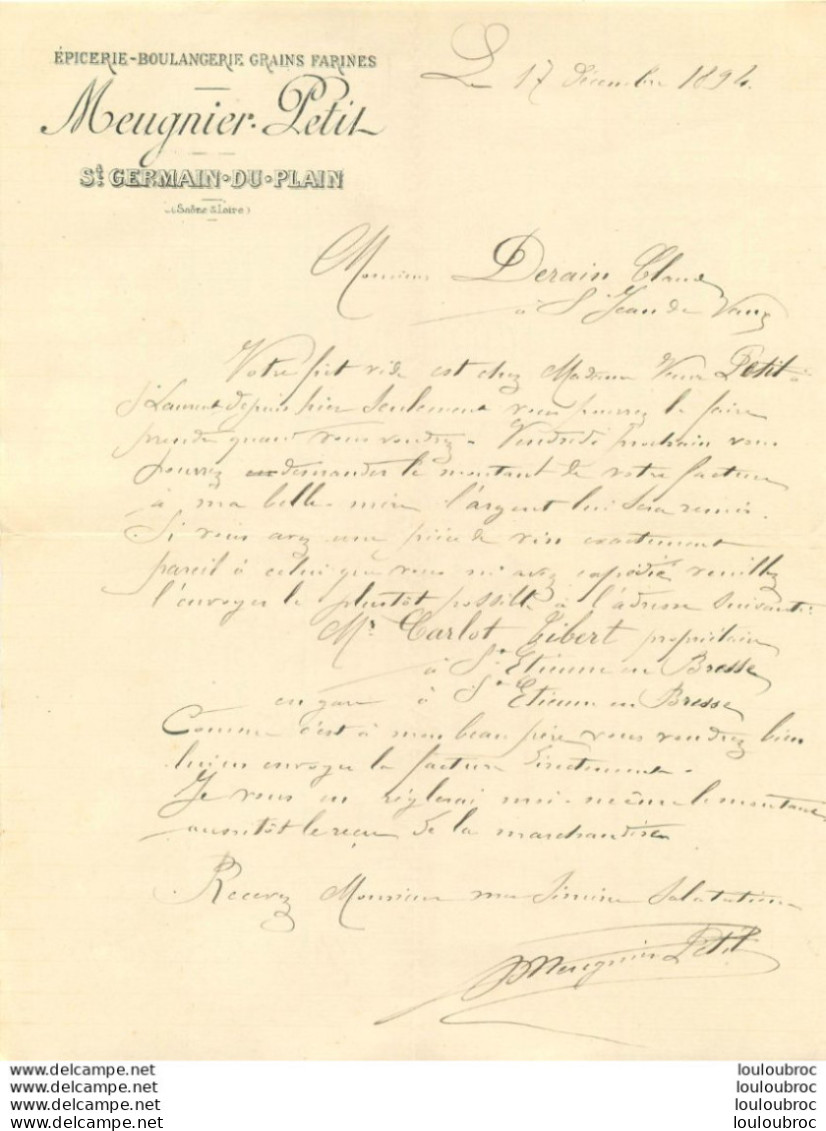 ÉPICERIE-BOULANGERIE GRAINS FARINES
Meugnier-Petit
St GERMAIN-DU-PLAIN
(Saône & Loire)
Le 17 Décembre 1894.
Monsieur Derain Claude
à St Jean de Vaux
Votre fût vide est chez Madame Veuve Petit
St Laurent depuis hier seulement vous pourrez le faire
prendre quant vous voudrez. Vendredi prochain vous
pourrez demander le montant de votre facture
à ma belle-mère l'argent lui sera remis.
Si vous avez une pièce de vin exactement
pareil à celui que vous m'avez expédié veuillez
l'envoyer le plustôt possible à l'adresse suivante:
Mr Carlot Tibert propriétaire
à St Etienne en Bresse
en gare à St Etienne en Bresse
Comme c'est à mon beau père vous voudrez bien
lui en envoyer la facture directement.
Je vous en règlerai moi-même le montant
aussitôt le reçu de la marchandise
Recevez Monsieur mes Sincères Salutations
Meugnier Petit
www.delcampe.net
www.delcampe.net
www.delcampe.net
www.delcampe.net
louloubroc
louloubroc
louloubroc
louloubroc